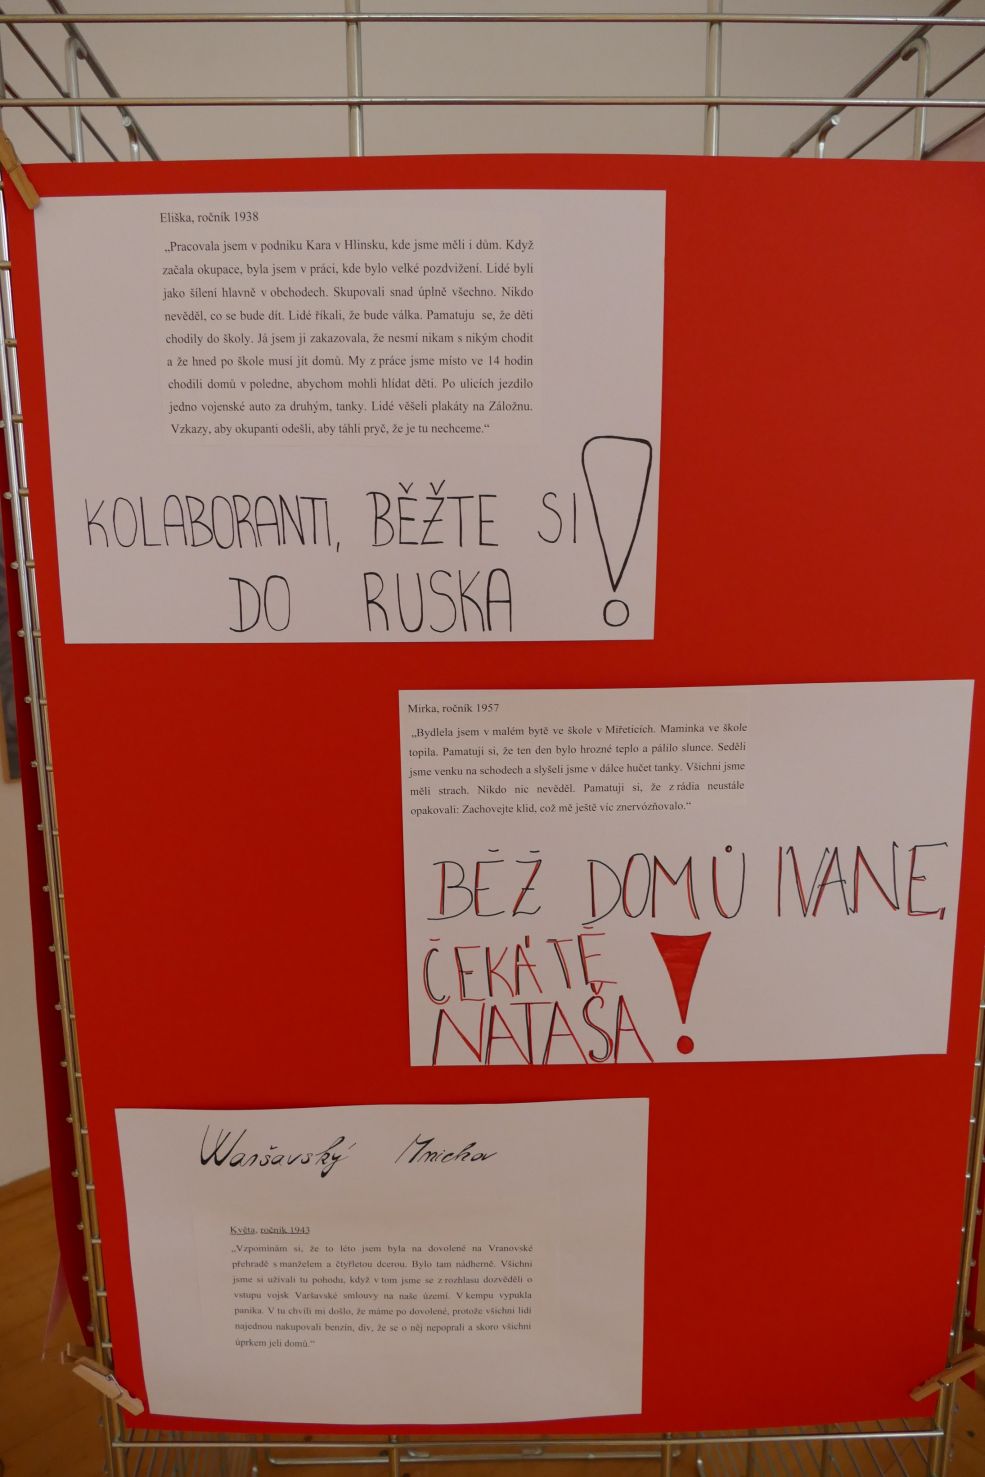 Eliška, ročník 1938
„Pracovala jsem v podniku Kara v Hlinsku, kde jsme měli i dům. Když
začala okupace, byla jsem v práci, kde bylo velké pozdvižení. Lidé byli
jako šílení hlavně v obchodech. Skupovali snad úplně všechno. Nikdo
nevěděl, co se bude dít. Lidé říkali, že bude válka. Pamatuju se, že děti
chodily do školy. Já jsem jí zakazovala, že nesmí nikam s nikým chodit
a že hned po škole musí jít domů. My z práce jsme místo ve 14 hodin
chodili domů v poledne, abychom mohli hlídat děti. Po ulicích jezdilo
jedno vojenské auto za druhým, tanky. Lidé věšeli plakáty na Záložnu.
Vzkazy, aby okupanti odešli, aby táhli pryč, že je tu nechceme.“
KOLABORANTI, BĚŽTE SI
DO RUSKA!
Mirka, ročník 1957
„Bydlela jsem v malém bytě ve škole v Miřeticích. Maminka ve škole
topila. Pamatuji si, že ten den bylo hrozné teplo a pálilo slunce. Seděli
jsme venku na schodech a slyšeli jsme v dálce hučet tanky. Všichni jsme
měli strach. Nikdo nic nevěděl. Pamatuji si, že z rádia neustále
opakovali: Zachovejte klid, což mě ještě víc znervózňovalo.“
BĚŽ DOMŮ IVANE,
ČEKÁ TĚ
NATAŠA!
Waršavský Mnichov
Květa, ročník 1943
„Vzpomínám si, že to léto jsem byla na dovolené na Vranovské
přehradě s manželem a čtyřletou dcerou. Bylo tam nádherně. Všichni
jsme si užívali tu pohodu, když v tom jsme se z rozhlasu dozvěděli o
vstupu vojsk Varšavské smlouvy na naše území. V kempu vypukla
panika. V tu chvíli mi došlo, že máme po dovolené, protože všichni lidi
najednou nakupovali benzín, div, že se o něj nepoprali a skoro všichni
úprkem jeli domů.“